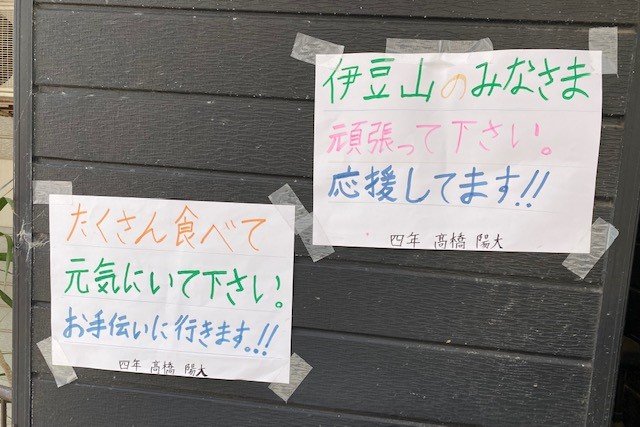 伊豆山のみなさま
頑張って下さい。
応援してます!!
四年 髙橋 陽大
たくさん食べて
元気にいて下さい。
お手伝いに行きます!!
四年 髙橋 陽大